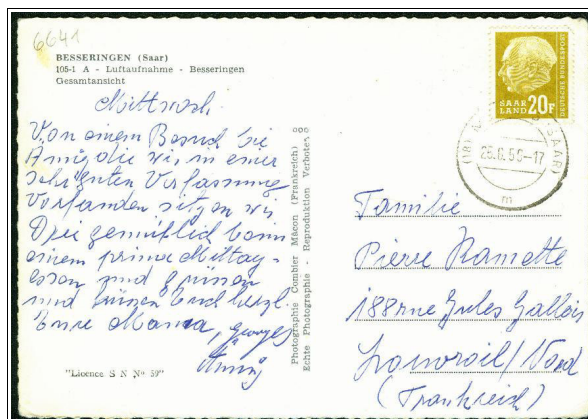 6641
BESSERINGEN (Saar)
105-1 A - Luftaufnahme - Besseringen
Gesamtansicht
Mittwoch.
Von einem Besuch bei
die wir in einer
sehr guten Verfassung
vorfanden sitzen wir
Drei gemütlich beim
einem prima Mittag-
essen und grüssen
und Euch herzl.
Eure Mama, Georges
"Licence S N Nº 59"
Photographie Combier Mâcon (Frankreich)
Echte Photographie Reproduktion Verboten
SAAR
LAND 20F
DEUTSCHE BUNDESPOST
(SAAR)
m
Familie
Pierre Ramette
188 rue Jules Gallois
Nord
(Frankreich)